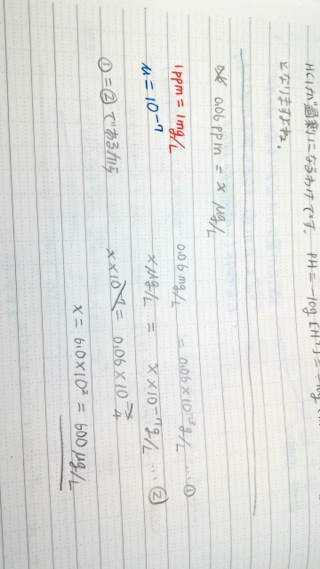 HClが過剰になるわけです。 PH = -log[H⁺] = -log
となりますよね。
0.06 ppm = x μg/L
1ppm = 1mg/L 0.06mg/L = 0.06×10⁻³g/L … ①
μ = 10⁻⁷ xμg/L = x×10⁻⁷g/L … ②
①=②であるから x×10⁻⁷ = 0.06×10⁻³ 4
x = 6.0×10² = 600 μg/L